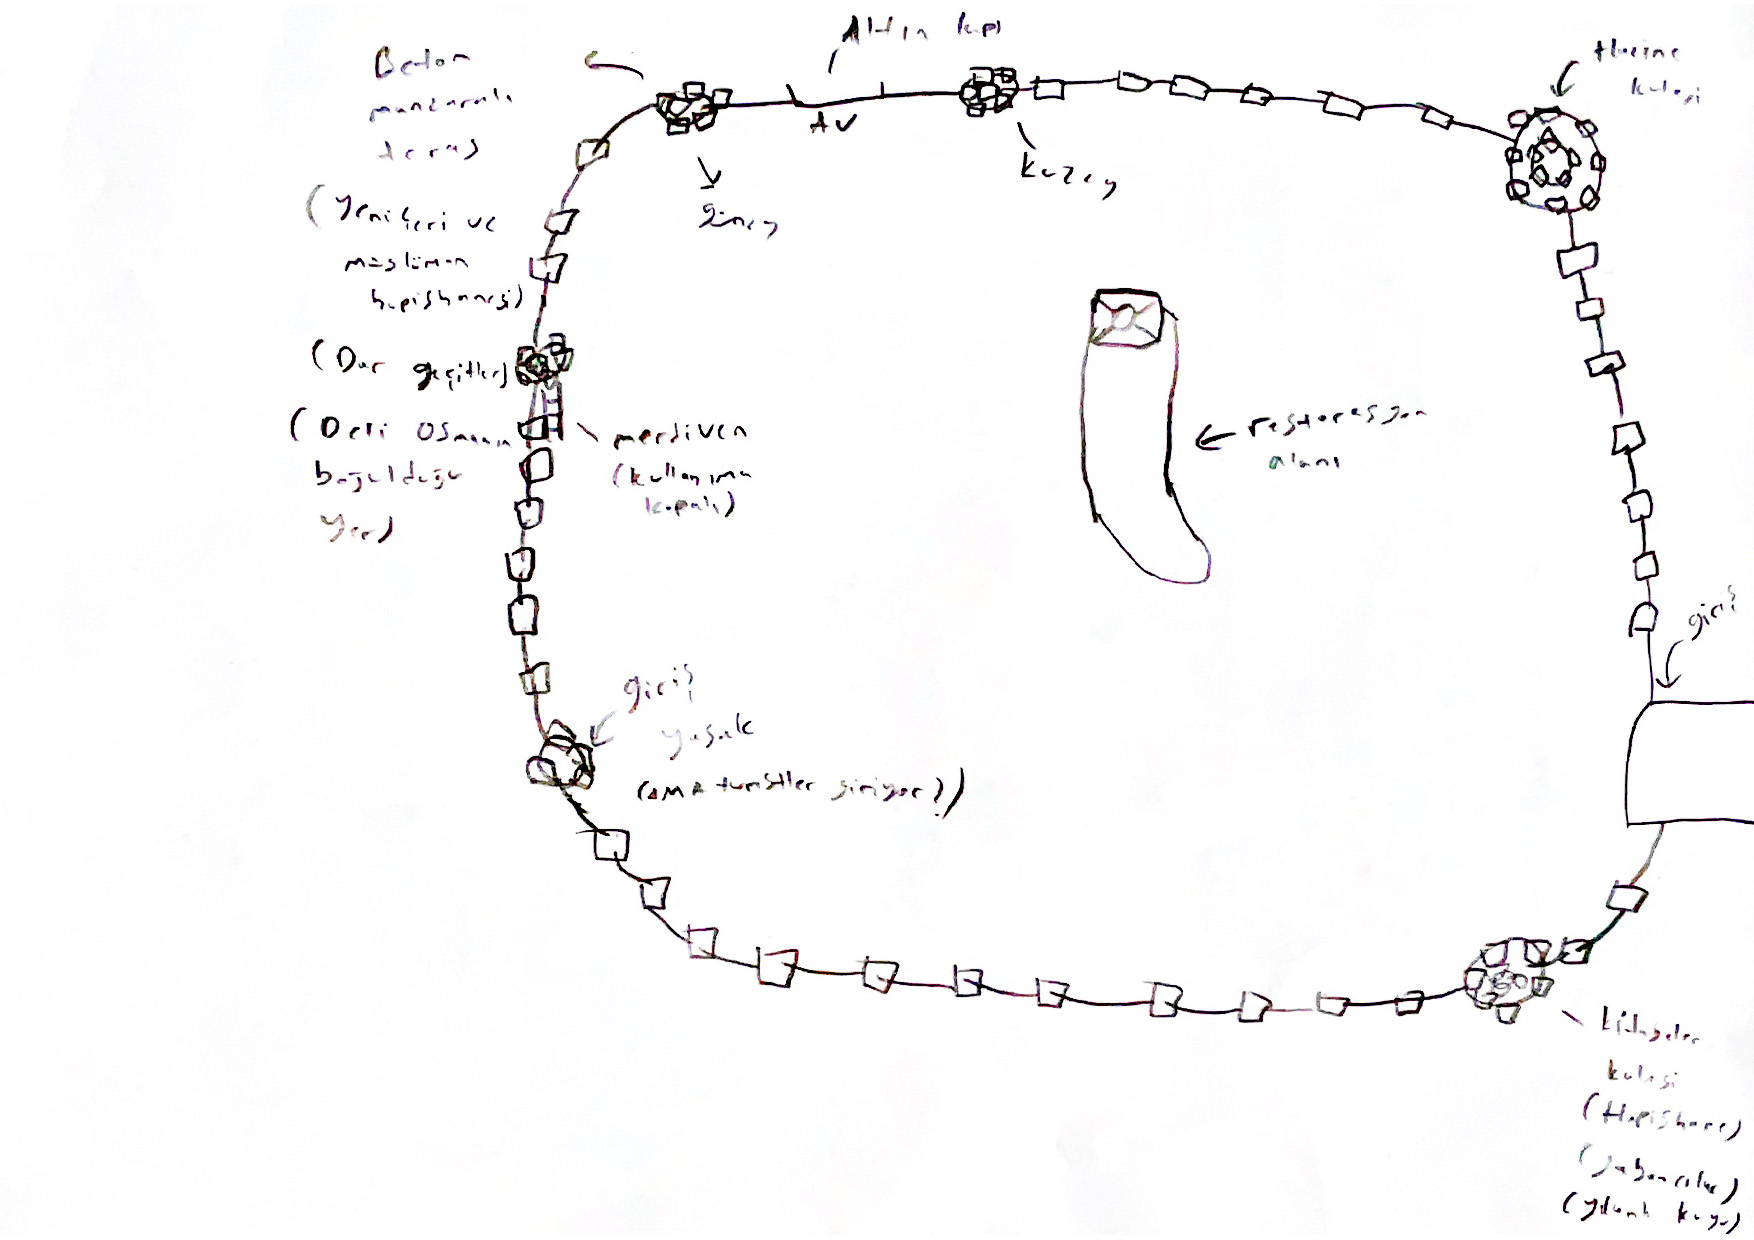 Altın kapı
Beton
manzaralı
teras
Hazine
kulesi
AV
kuzey
güney
(Yeniçeri ve
müslüman
hapishanesi)
(Dar geçitler)
(Deli Osmanın
boğulduğu
yer)
merdiven
(kullanıma
kapalı)
restorasyon
alanı
giriş
giriş
yasak
(AMA turistler giriyor?)
kitabeler
kulesi
(Hapishane)
(yabancılar)
(yılanlı kuyu)